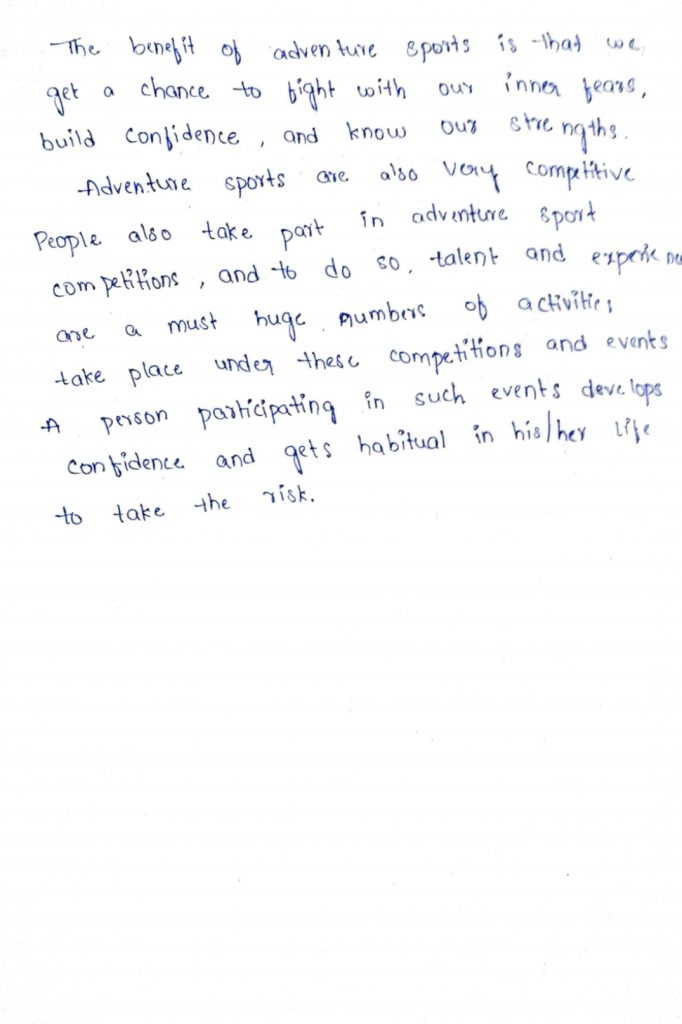 The benefit of adventure sports is that we
get a chance to fight with our inner fears,
build confidence, and know our strengths.
Adventure sports are also very competitive
People also take part in adventure sport
competitions, and to do so, talent and
are a must huge numbers of activities
take place under these competitions and events
A person participating in such events develops
confidence and gets habitual in his/her life
to take the risk.